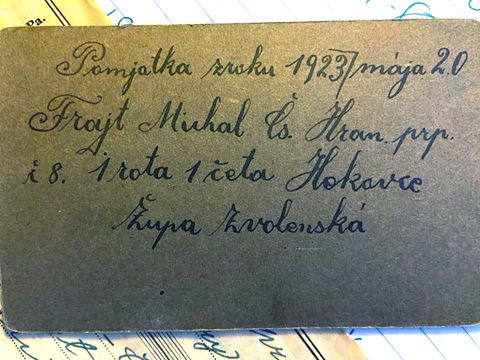 Pa.
Pomjatka zroku 1923/mája 20
Frajt Michal Čs. Hran. prp.
i 8. 1 rota 1 četa Hokovce
Župa Zvolenská